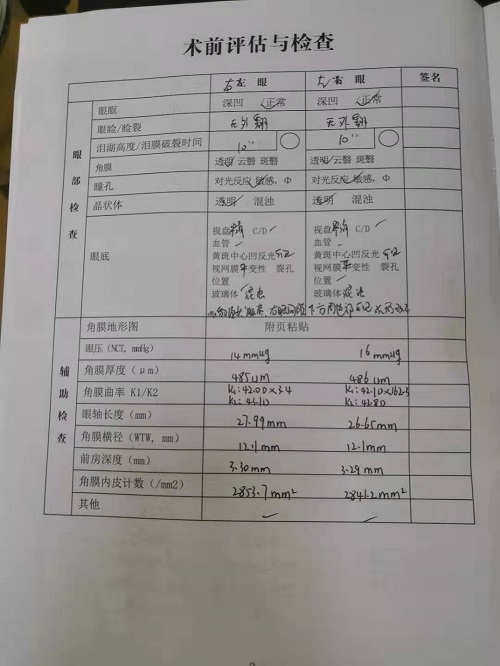 术前评估与检查
右左 眼 左右 眼 签名
眼部检查
眼眶 深凹 正常 深凹 正常
眼睑/睑裂 无外翻 无外翻
泪湖高度/泪膜破裂时间 10'' 10''
角膜 透明/云翳 斑翳 透明/云翳 斑翳
瞳孔 对光反应 敏感, Φ 对光反应 敏感, Φ
晶状体 透明 混浊 透明 混浊
眼底
视盘 C/D 视盘 C/D
血管 血管
黄斑中心凹反光 黄斑中心凹反光
视网膜 平 变性 裂孔 视网膜 平 变性 裂孔
位置 位置
玻璃体 混浊 玻璃体 混浊
辅助检查
角膜地形图 附页粘贴
眼压(NCT, mmHg) 14mmHg 16mmHg
角膜厚度(μm) 485um 486um
角膜曲率 K1/K2 K1: 42.0D×3.4 K1: 42.1D×162.3
K2: 43.1D K2: 42.8D
眼轴长度(mm) 27.99mm 26.65mm
角膜横径(WTW, mm) 12.1mm 12.1mm
前房深度(mm) 3.30mm 3.29mm
角膜内皮计数(/mm2) 2853.7mm² 2841.2mm²
其他